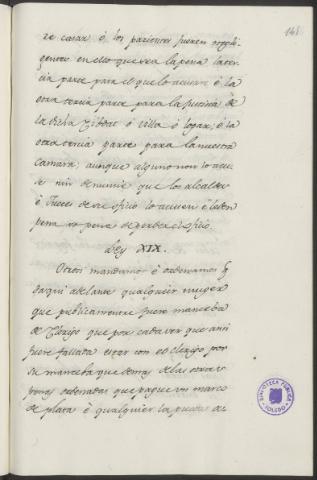 148
re casar é los parientes fueren negli-
gentes en ello que sea la pena la ter-
cia parte para el que lo acusare é la
otra tercia parte para la justicia de
la dicha Cibdat ó villa ó logar; é la
otra tercia parte para la nuestra
Camara; aunque alguno non lo acu-
se nin denuncie que los alcaldes
é Jueces de su oficio lo acusen é lieben
pena so pena de perder el oficio.
Ley XIX.
Otrosi mandamos é ordenamos q
daqui adelante qualquier muger
que publicamente fuere manceba
de Clerigo que por cada vez que ansi
fuere fallada estar con el Clerigo por
su manceba que demas de las otras
penas ordenadas que pague un marco
de plata é qualquier la pueda ac
BIBLIOTECA PUBLICA
TOLEDO